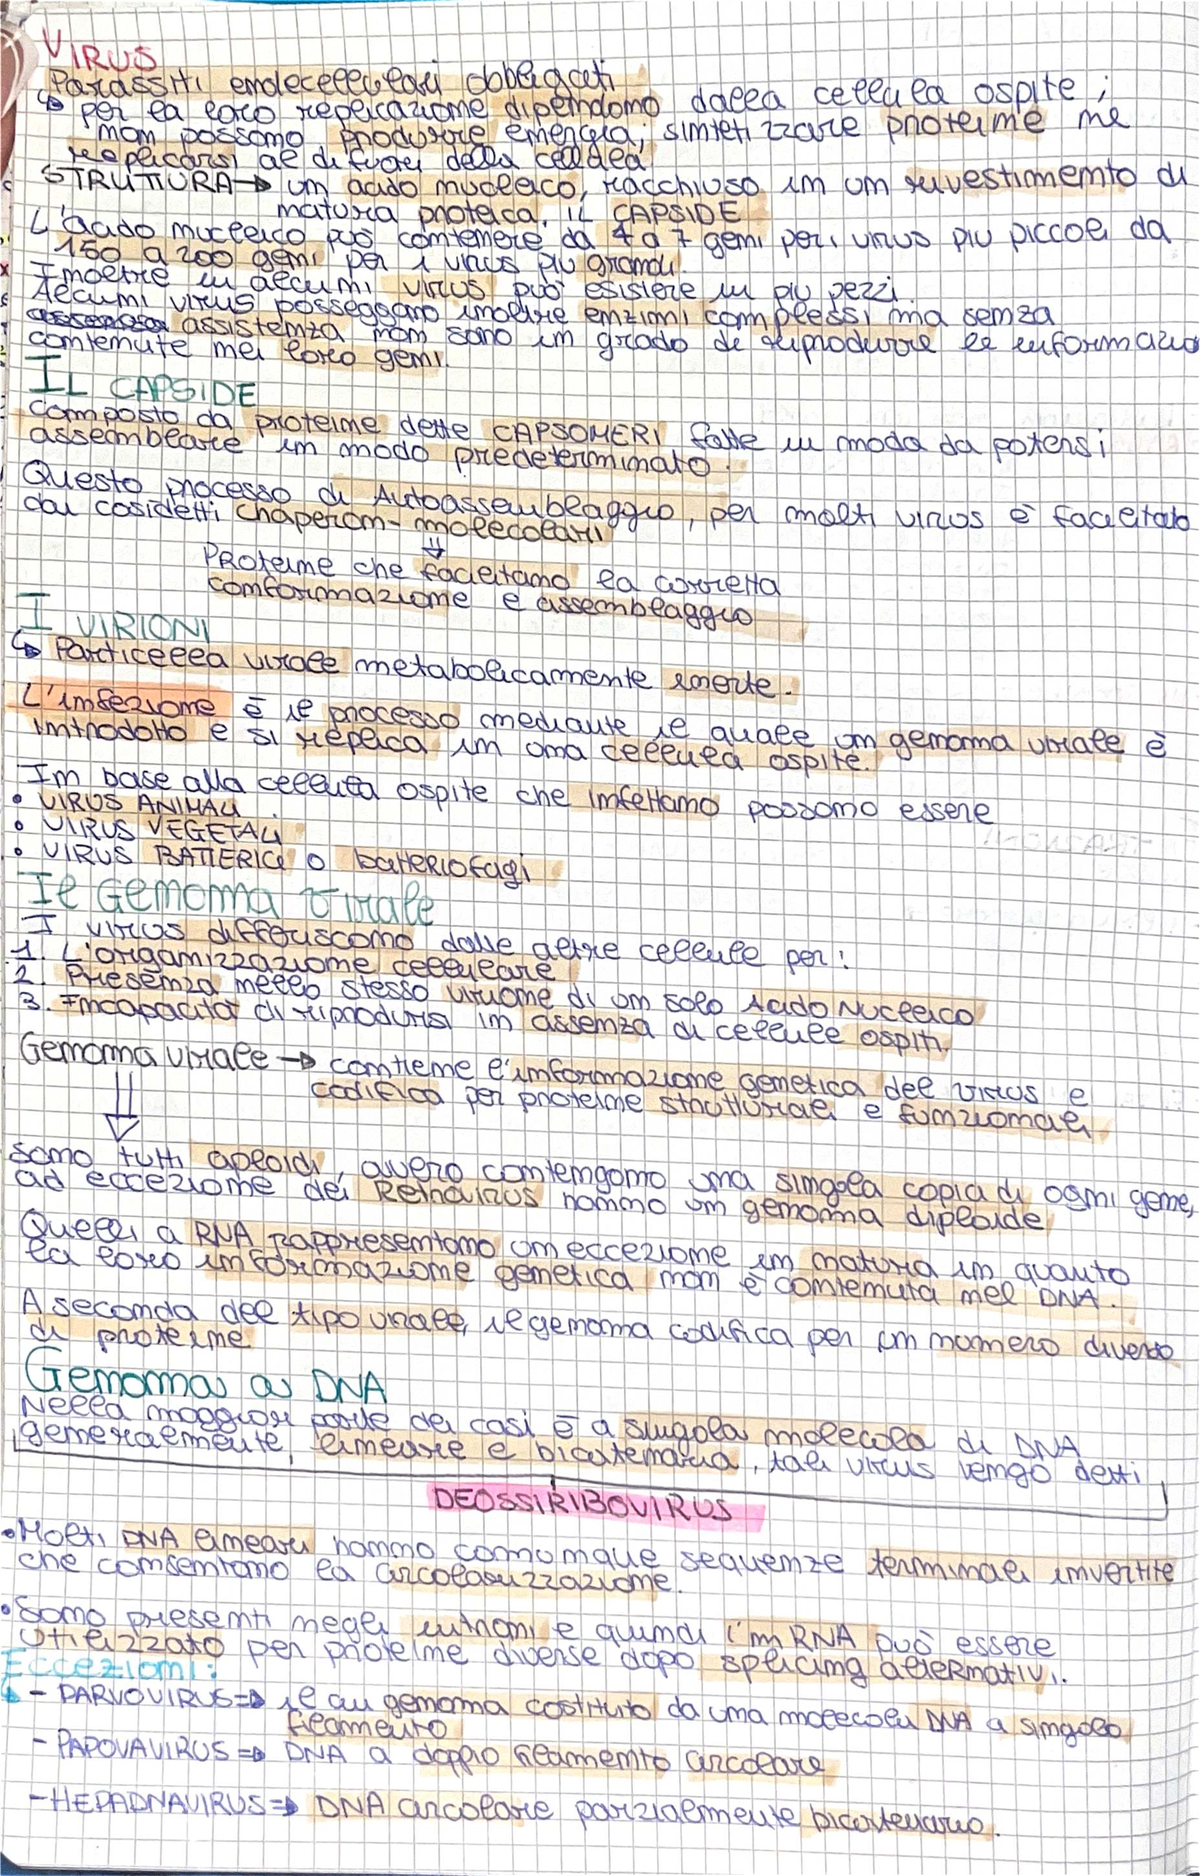 VIRUS
Parassiti endocellulari obbligati
↳ per la loro replicazione dipendono dalla cellula ospite;
non possono produrre energia, sintetizzare proteine ne
replicarsi al di fuori della cellula
STRUTTURA → un acido nucleico, racchiuso in un rivestimento di
natura proteica, il CAPSIDE
L'acido nucleico può contenere da 4 a 7 geni per i virus più piccoli da
150 a 200 geni per i virus più grandi.
Inoltre in alcuni virus può esistere in più pezzi.
Alcuni virus posseggano inoltre enzimi complessi ma senza
assistenza non sono in grado di riprodurre le informazio
contenute nei loro geni.
IL CAPSIDE
composto da proteine dette CAPSOMERI fatte in moda da potersi
assemblare in modo predeterminato.
Questo processo di Autoassemblaggio, per molti virus è facilitato
dai cosidetti chaperon-molecolari
⇓
PRoteine che facilitano la corretta
conformazione e assemblaggio
I VIRIONI
↳ Particella virale metabolicamente inerte.
L'infezione è il processo mediante il quale un genoma virale è
introdotto e si replica in una cellula ospite.
In base alla cellula ospite che infettano possono essere
• VIRUS ANIMALI
• VIRUS VEGETALI
• VIRUS BATTERICI o batteriofagi
Il Genoma Virale
I virus differiscono dalle altre cellule per:
1. L'organizzazione cellulare
2. Presenza nello stesso virione di un solo Acido Nucleico
3. Incapacità di riprodursi in assenza di cellule ospiti
Genoma virale → contiene l'informazione genetica del virus e
codifica per proteine strutturali e funzionali
⇓
Sono tutti aploidi, ovvero contengono una singola copia di ogni gene,
ad eccezione dei Retrovirus hanno un genoma diploide
Quelli a RNA rappresentano un eccezione in natura in quanto
la loro informazione genetica non è contenuta nel DNA.
A seconda del tipo virale, il genoma codifica per un numero diverso
di proteine
Genoma a DNA
Nella maggior parte dei casi è a singola molecola di DNA
generalmente, lineare e bicatenaria, tali virus vengo detti
DEOSSIRIBOVIRUS
• Molti DNA lineari hanno comunque sequenze terminali invertite
che consentono la circolarizzazione.
• Sono presenti negli introni e quindi l'mRNA può essere
utilizzato per proteine diverse dopo splicing alternativi.
Eccezioni:
↳ - PARVOVIRUS ⇒ il cui genoma costituto da una molecola DNA a singolo
filamento
- PAPOVAVIRUS ⇒ DNA a doppio filamento circolare
- HEPADNAVIRUS ⇒ DNA circolare parzialmente bicatenario.